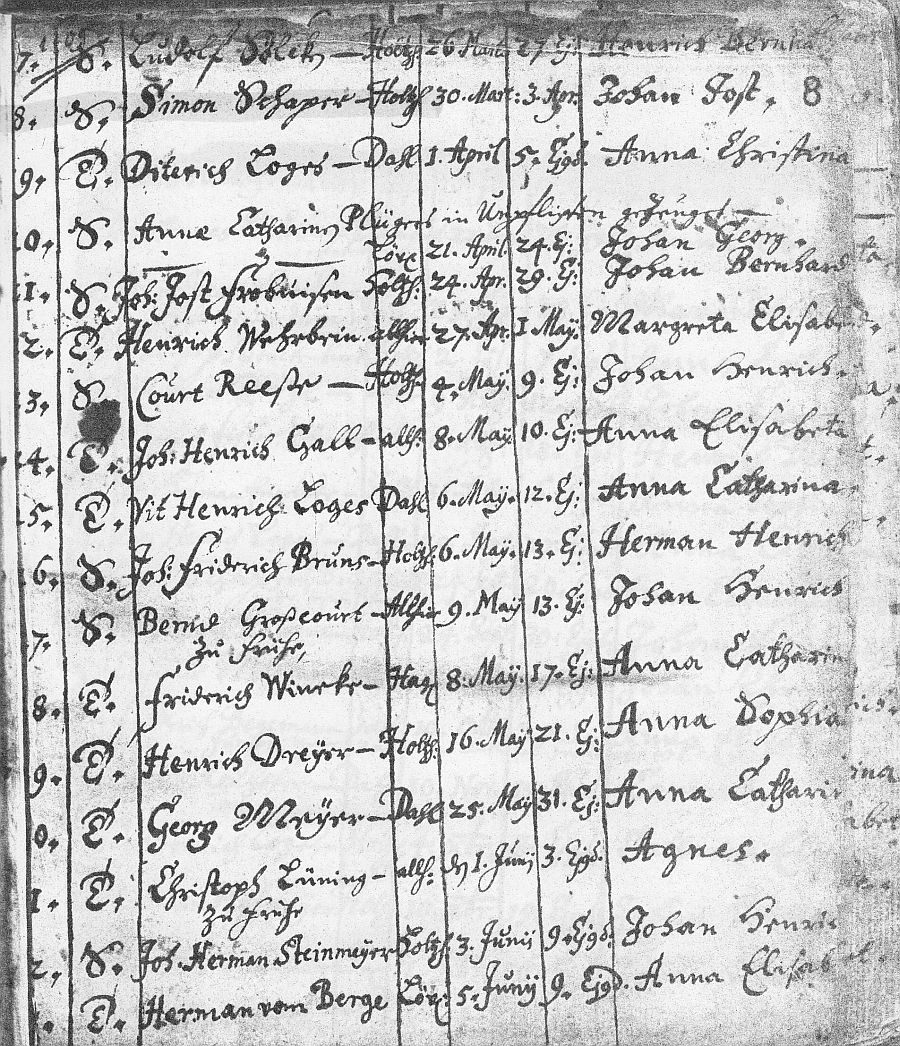 7. S. Ludolf Sölck – Holtzh 26 Mart. 27 Ej. Henrich Bernha
8. S. Simon Schaper – Holtzh 30. Mart: 3. Apr. Johan Jost. 8
9. T. Diterich Loges – Dahl 1. April 5. Ejgd. Anna Christina
0. S. Anna Catharina Plügers in Unpflichten gezeuget –
Lörx 21. April. 24. Ej: Johan Georg.
1. S. Joh: Jost Frobmisen Holtzh: 24. Apr. 29. Ej: Johan Bernhard
2. T. Henrich Wehrbein allhie 27. Apr. 1 May. Margreta Elisabe
3. S. Court Reeße – Holtzh 4. May. 9. Ej: Johan Henrich.
4. T. Joh: Henrich Gall – allh: 8. May 10. Ej: Anna Elisabeta
5. T. Vit Henrich Loges Dahl 6. May. 12. Ej: Anna Catharina
6. S. Joh: Friderich Bruns – Holtzh 6. May. 13. Ej: Herman Henrich
7. S. Bernd Großcourt – Allhie 9. May 13. Ej: Johan Henrich
zu Frühe,
8. T. Friderich Wineke – Hag 8. May. 17. Ej: Anna Catharin
9. T. Henrich Dreyer – Holtzh: 16. May 21. Ej: Anna Sophia
0. T. Georg Meyer – Dahl 25. May 31. Ej: Anna Catharin
1. T. Christoph Lüning – allh: d 1. Junij 3. Ejgd. Agnes.
zu Frühe
2. S. Joh. Herman Steinmeyer Holtzh: 3. Junij 9. Ejgd. Johan Henric
. T. Herman vom Berge Lörx 5. Junij 9. Ejgd. Anna Elisab